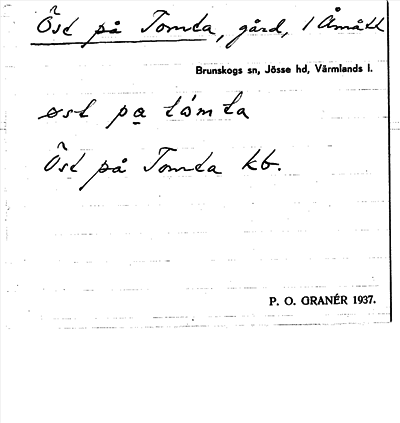 Öst på Tomta, gård, 1 Åmått
Brunskogs sn, Jösse hd, Värmlands l.
øst pa tómta
Öst på Tomta kb.
P. O. GRANÉR 1937.